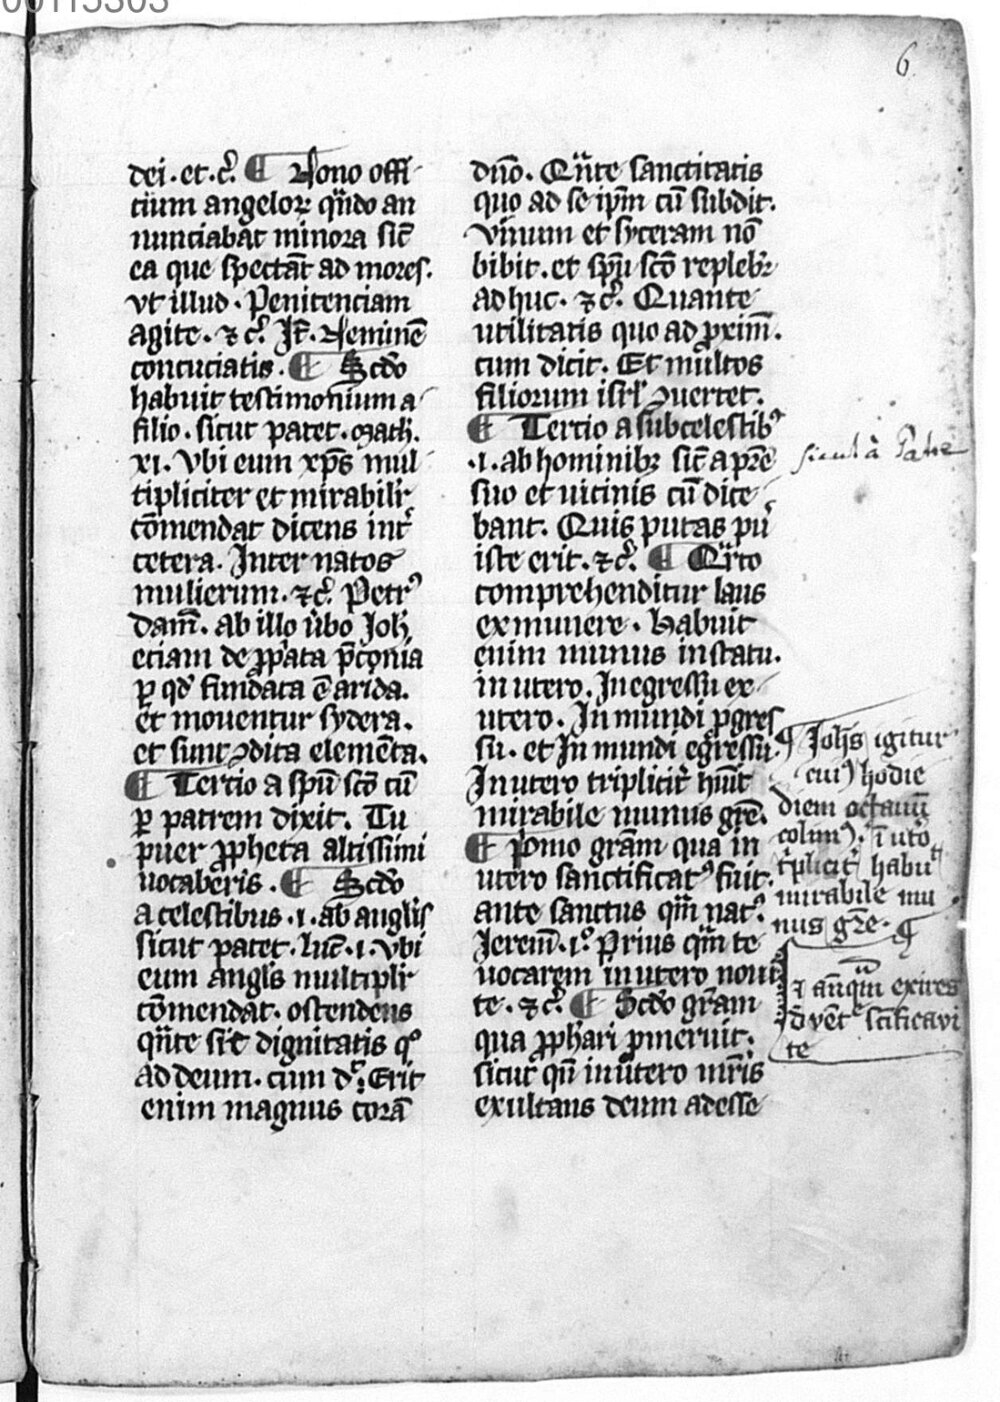 00115303
6
dei. et. c̃. ¶ Nono offi
cium angeloꝝ qn̄do an
nunciabāt minora sic̄
ea que spectāt ad mores.
vt illud. Penitenciam
agite. ⁊ c̃. It̄. Neminē
concuciatis. ¶ Scd̄o
habuit testimonium a
filio. sicut patet. Math.
xi. Vbi eum xp̄s mul
tipliciter et mirabilit̄
cōmendat dicens int̄
cetera. Inter natos
mulierum. ⁊c̃. Petrꝰ
dam̄. ab illo ūbo Joh̄.
etiam de ꝓp̄ata p̄conia
ꝑ qd̄ fundata ē arida.
et mouentur sydera.
et sunt ꝯdita elemēta.
¶ Tercio a spū scō cū
ꝑ patrem dixit. Tu
puer ꝓpheta altissimi
uocaberis. ¶ Scd̄o
a celestibus .i. ab angl̄is
sicut patet. luc̄. i. vbi
eum angl̄s multiplit̄
cōmendat. ostendens
qn̄te sit dignitatis qͦ
ad deum. cum dc̄. Erit
enim magnus corā
dn̄o. Qn̄te sanctitatis
quo ad se ip̄m cū subdit.
Vinum et syceram nō
bibit. et spū scō replebit̄
adhuc. ⁊ c̃. Quante
utilitatis quo ad ꝓxim̄.
cum dicit. Et multos
filiorum isrl̄ ꝯuertet.
¶ Tercio a subcelestibꝰ
.i. ab hominibꝫ sic̄ a pr̄e
suo et uicinis cū dice
bant. Quis putas pu
iste erit. ⁊c̃. ¶ Qͣrto
comprehenditur laus
ex munere. Habuit
enim munus in statu.
in utero. In egressu ex
utero. In mundi ꝓgres
su. et In mundi egressu.
In utero triplicit̄ hūit
mirabile munus gr̄e.
¶ Pͥmo gr̄am qua in
utero sanctificatꝰ fuit.
ante sanctus qm̄ natꝰ.
Jerem̄. iͦ. Prius qm̄ te
uocarem in utero noui
te. ⁊c̃. ¶ Scd̄o gr̄am
qua ꝓphari ꝓmeruit.
sicut qn̄ in utero mr̄is
exultans deum adesse
sicut a Patre
¶ Joh̄s igitur
cuiꝰ hodie
diem octauū
colimꝰ. ī uto
t̄plicit̄ habuͭ
mirabile mu
nus gr̄e. ¶
⁊ an̄qm̄ exires
d̄ vēt͛ sc̄ificaui
te